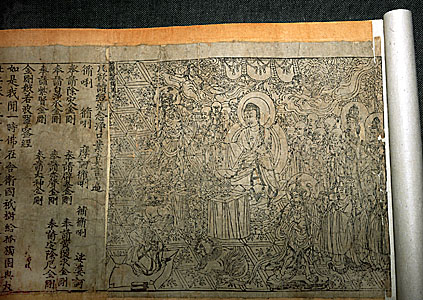 凡欲讀經先念淨口業真言一遍
脩唎 脩唎 摩訶脩唎 脩脩唎 娑婆訶
奉請除災金剛 奉請辟毒金剛 奉請黃隨求金剛
奉請白淨水金剛 奉請赤聲金剛 奉請定除厄金剛
奉請紫賢金剛 奉請大神金剛
金剛般若波羅蜜經
如是我聞一時佛在舍衛國祇樹給孤獨園與大